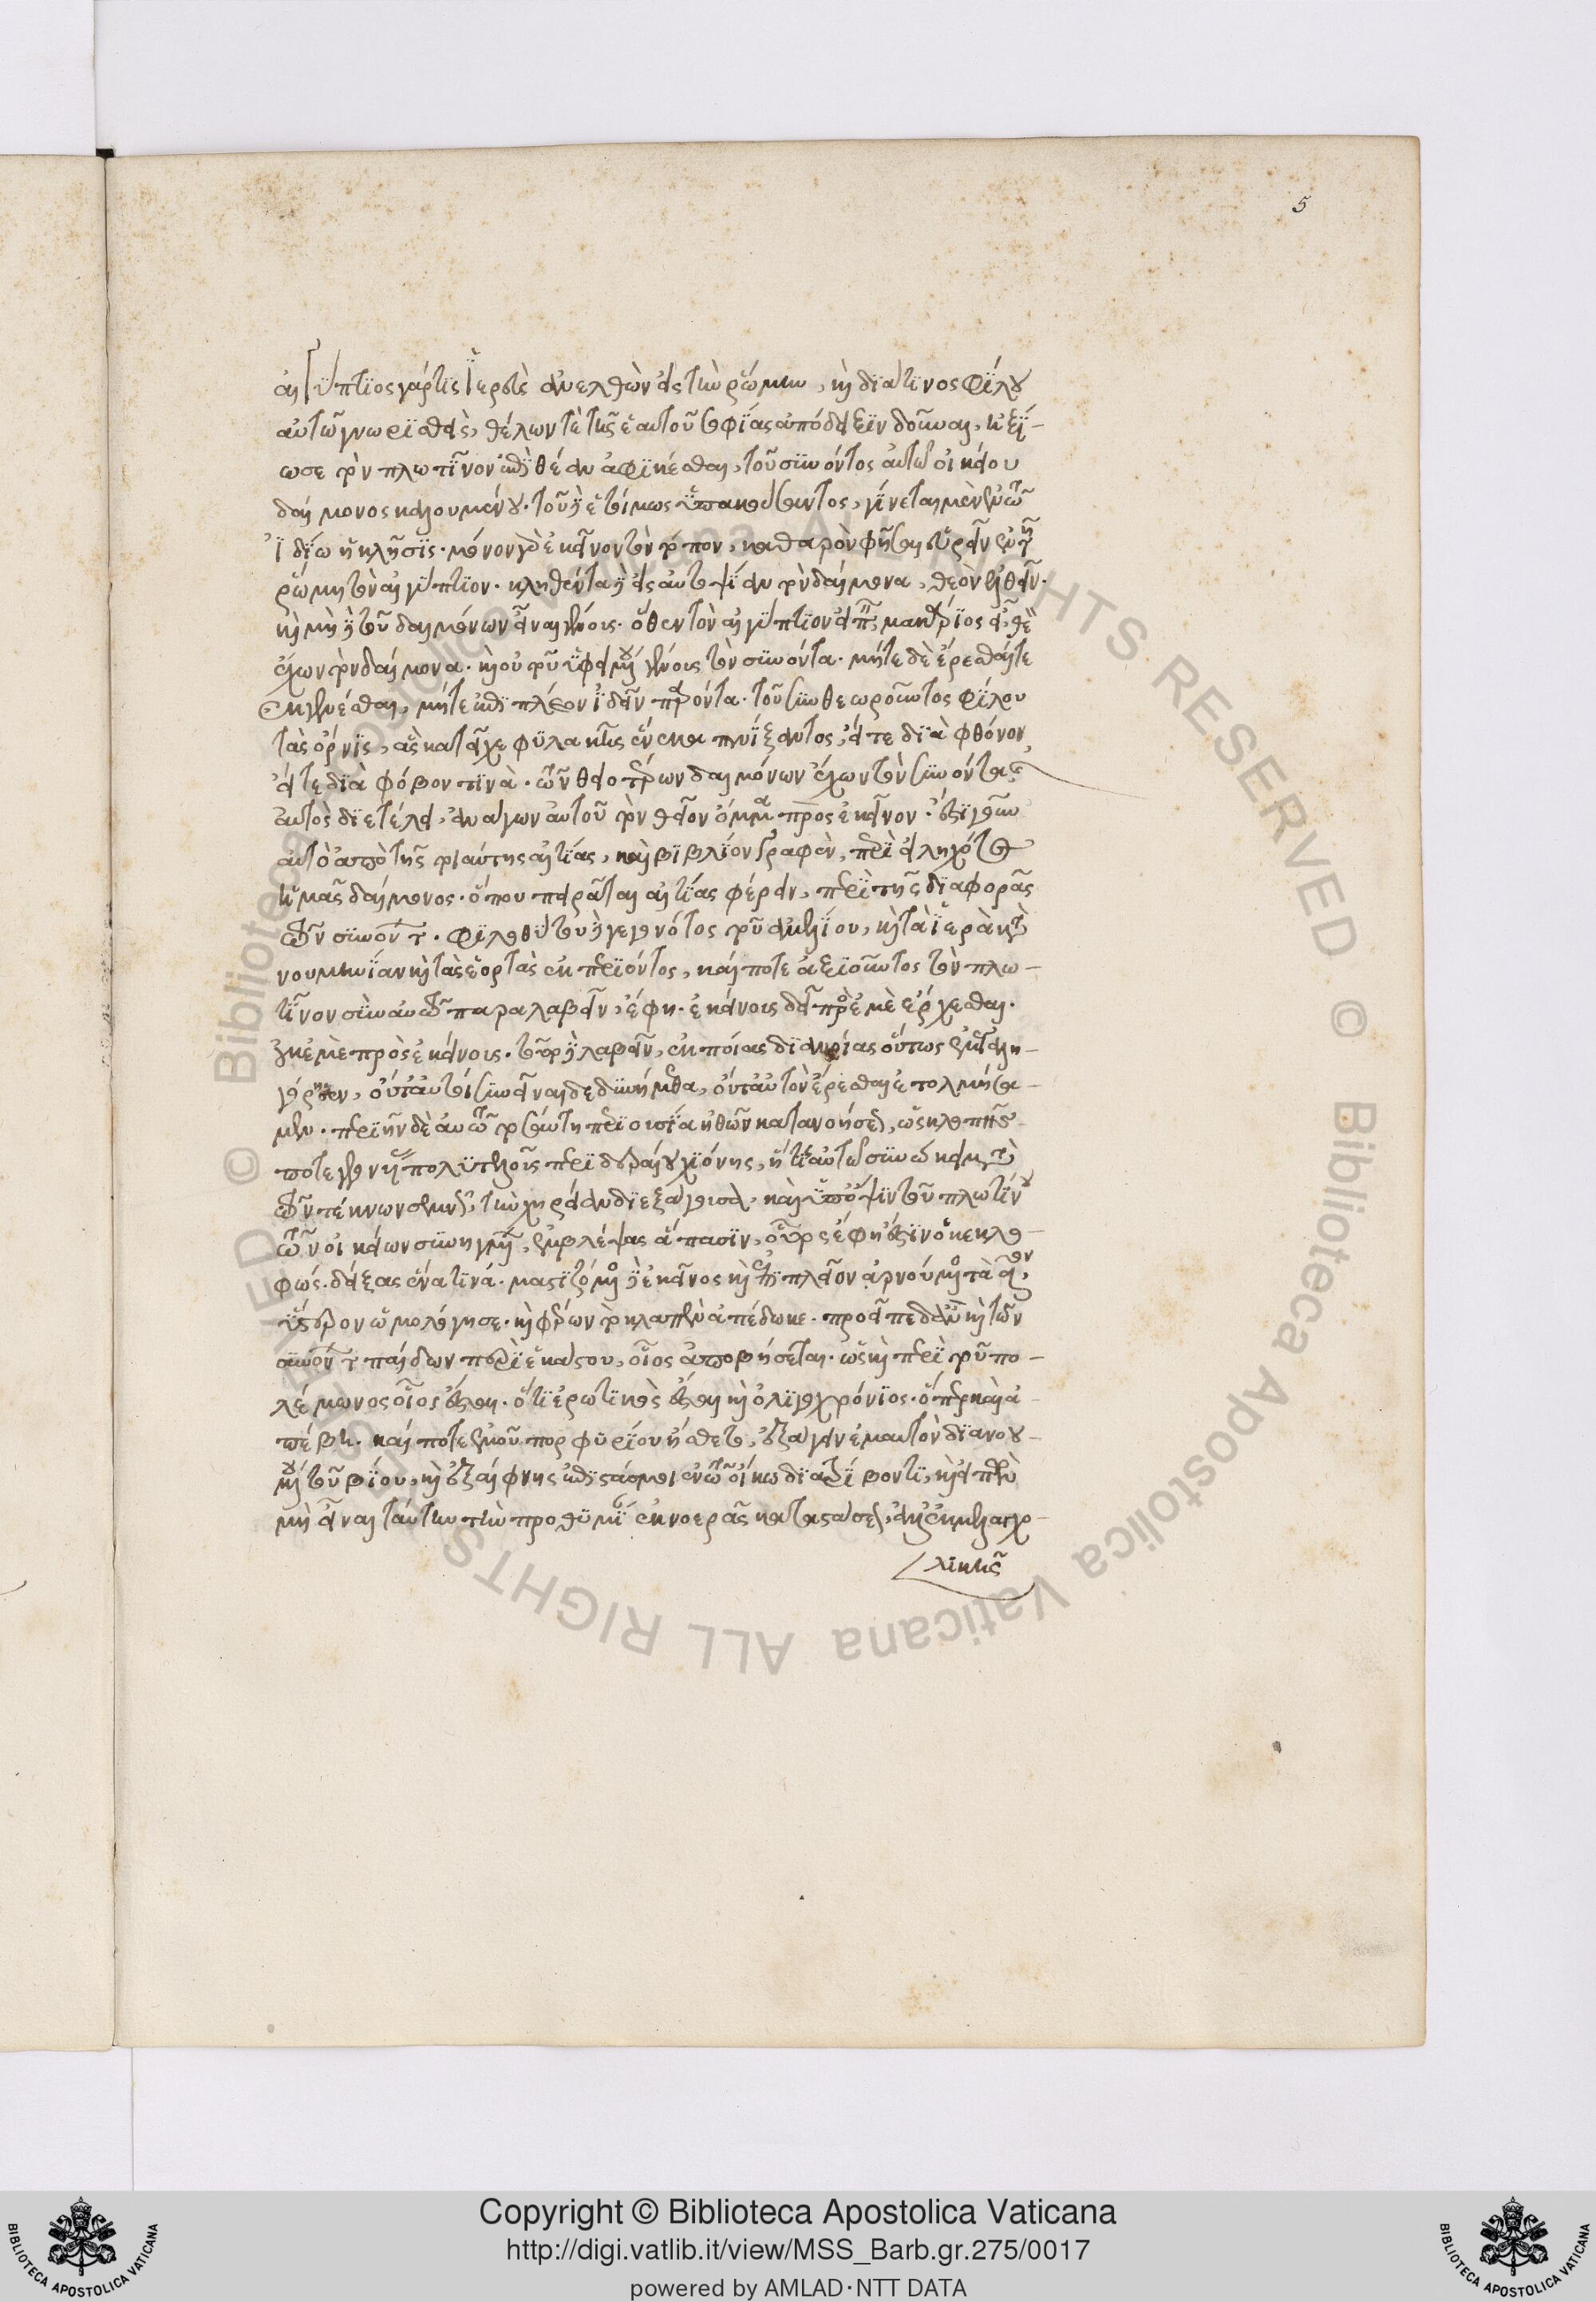 αἰγύπτϊος γάρ τις ἱερεὺς ἀνελθὼν εἰς τὴν ῥώμην, καὶ δϊα τινος φΐλου
αὐτῶ γνωρϊσθεὶς, θέλων τὲ τῆς ἑαυτοῦ σοφΐας ἀπόδειξϊν δοῦναι, ἠξΐ-
ωσε τὸν πλωτῖνον ἐπϊ θέαν ἀφϊκέσθαι, τοῦ συνόντος αὐτῶ οἰκείου
δαίμονος καλουμένου. τοῦ δὲ ἑτοίμως ὑπακούσαντος, γΐνεται μὲν ἐν τῶ
ἰδίω ἡ κλῆσϊς. μόνον γὰρ ἐκεῖνον τὸν τόπον, καθαρὸν φῆσαι εὑρεῖν ἐν τῆ
ῥώμη τὸν αἰγύπτϊον. κληθέντα δὲ εἰς αὐτοψΐαν τὸν δαίμονα, θεὸν ἐλθεῖν.
καὶ μὴ δὲ τοῦ δαιμόνων εἶναι γένοις. ὅθεν τὸν αἰγύπτϊον εἰπεῖν, μακάρϊος εἶ, θεὸν
ἔχων τὸν δαίμονα. καὶ οὐ τοῦ ὑφειμένου γένοις τὸν συνόντα. μήτε δὲ ἐρέσθαι τε
ἐκγενέσθαι, μήτε ἐπϊ πλέον ἰδεῖν παρόντα. τοῦ συνθεωροῦντος φΐλου
τὰς ὄρνϊς, ἃς κατεῖχε φϋλακῆς ἕνεκα πνΐξαντος, εἴτε δϊὰ φθόνον
εἴτε δϊὰ φόβον τϊνὰ. τῶν θειοτέρων δαιμόνων ἔχων τὸν συνόντα
αὐτὸς δϊετέλει, ἀναγων αὐτοῦ τὸν θεῖον ὄμμα πρὸς ἐκεῖνον. ἔστϊ γοῦν
αὐτὸ ἀπὸ τῆς τοιαύτης αἰτίας, καὶ βϊβλΐον γραφὲν, περὶ εἰληχότος
ἡμᾶς δαίμονος. ὅπου πειρᾶται αἰτΐας φέρειν, περϊ τῆς δϊαφορᾶς
τῶν συνόντων. φϊλοθύτου δὲ γεγονότος τοῦ ἀμελΐου, καὶ τὰ ἱερὰ κατὰ
νουμηνΐαν καὶ τὰς ἑορτὰς ἐκπερϊόντος, καί ποτε ἀξϊοῦντος τὸν πλω-
τῖνον σὺν αὐτῶ παραλαβεῖν, ἔφη. ἐκείνοις δεῖ πρὸς ἐμὲ ἔρχεσθαι.
οὐκ ἐμὲ πρὸς ἐκείνοις. τοῦτο δὲ λαβεῖν, ἐκ ποίας δϊανοίας οὕτως ἐμεγαλη-
γόρησεν, οὔτ' αὐτοὶ συνεῖναι δεδυνήμεθα, οὔτ' αὐτὸν ἔρεσθαι ἐτολμήσα-
μεν. περϊῆν δὲ αὐτῶ τοσαύτη περϊουσΐα ἠθῶν κατανοήσεως, ὡς κλοπῆς
ποτε γεγονυΐας πολϋτελοῖς περϊδεραίου χϊόνης, ἥτις αὐτῶ συνώκει μετὰ
τῶν τέκνων σεμνῶς, τὴν χηρείαν δϊεξάγουσα, καὶ ὑπ' ὄψϊν τοῦ πλωτΐνου
τῶν οἰκείων συνηγμένων, ἐμβλέψας ἅπασϊν, οὗτος ἔφη ἐστϊν ὁ κεκλο-
φώς. δείξας ἕνα τϊνά. μαστϊζόμενος δὲ ἐκεῖνος καὶ ἐπϊπλεῖον ἀρνούμενος τὰ πρῶτα,
ὕστερον ὡμολόγησε. καὶ φέρων τὸ κλαπὲν ἀπέδωκε. προεῖπε δ' ἂν καὶ τῶν
συνόντων παίδων περϊ ἑκάστου, οἷος ἀποβήσεται. ὡς καὶ περϊ τοῦ πο-
λέμωνος οἷος ἔσται. ὅτϊ ἐρωτϊκὸς ἔσται καὶ ὀλϊγοχρόνϊος. ὅπερ καὶ ἀ-
πέβη. καί ποτε ἐμοῦ πορφϋρΐου ἤσθετο, ἐξαγειν ἐμαυτὸν δϊανοου-
μένου τοῦ βΐου, καὶ ἐξαίφνης ἐπϊστάς μοι ἐν τῶ οἴκω δϊατρΐβοντϊ, καὶ εἰπὼν
μὴ εἶναι ταύτην τὴν προθϋμΐαν ἐκ νοερᾶς καταστασεως, ἀλλ' ἐκ μελαγχο-
λϊκῆς
5
Copyright © Biblioteca Apostolica Vaticana
http://digi.vatlib.it/view/MSS_Barb.gr.275/0017
powered by AMLAD·NTT DATA